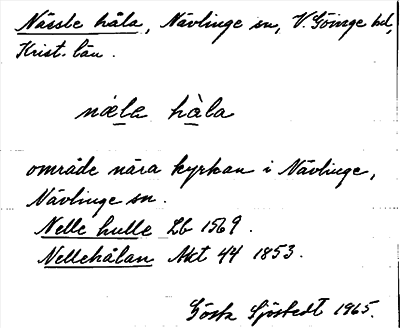 Nässle håla, Nävlinge sn, V. Göinge hd,
Krist. län.
næle hàla
område nära kyrkan i Nävlinge,
Nävlinge sn.
Nelle hulle Lb 1569.
Nellehålan Akt 44 1853.
Gösta Sjöstedt 1965.